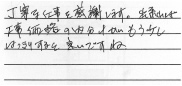 丁寧な仕事を感謝します。出来れば
工事価格の内分けがもう少し
はっきりすると良いですね